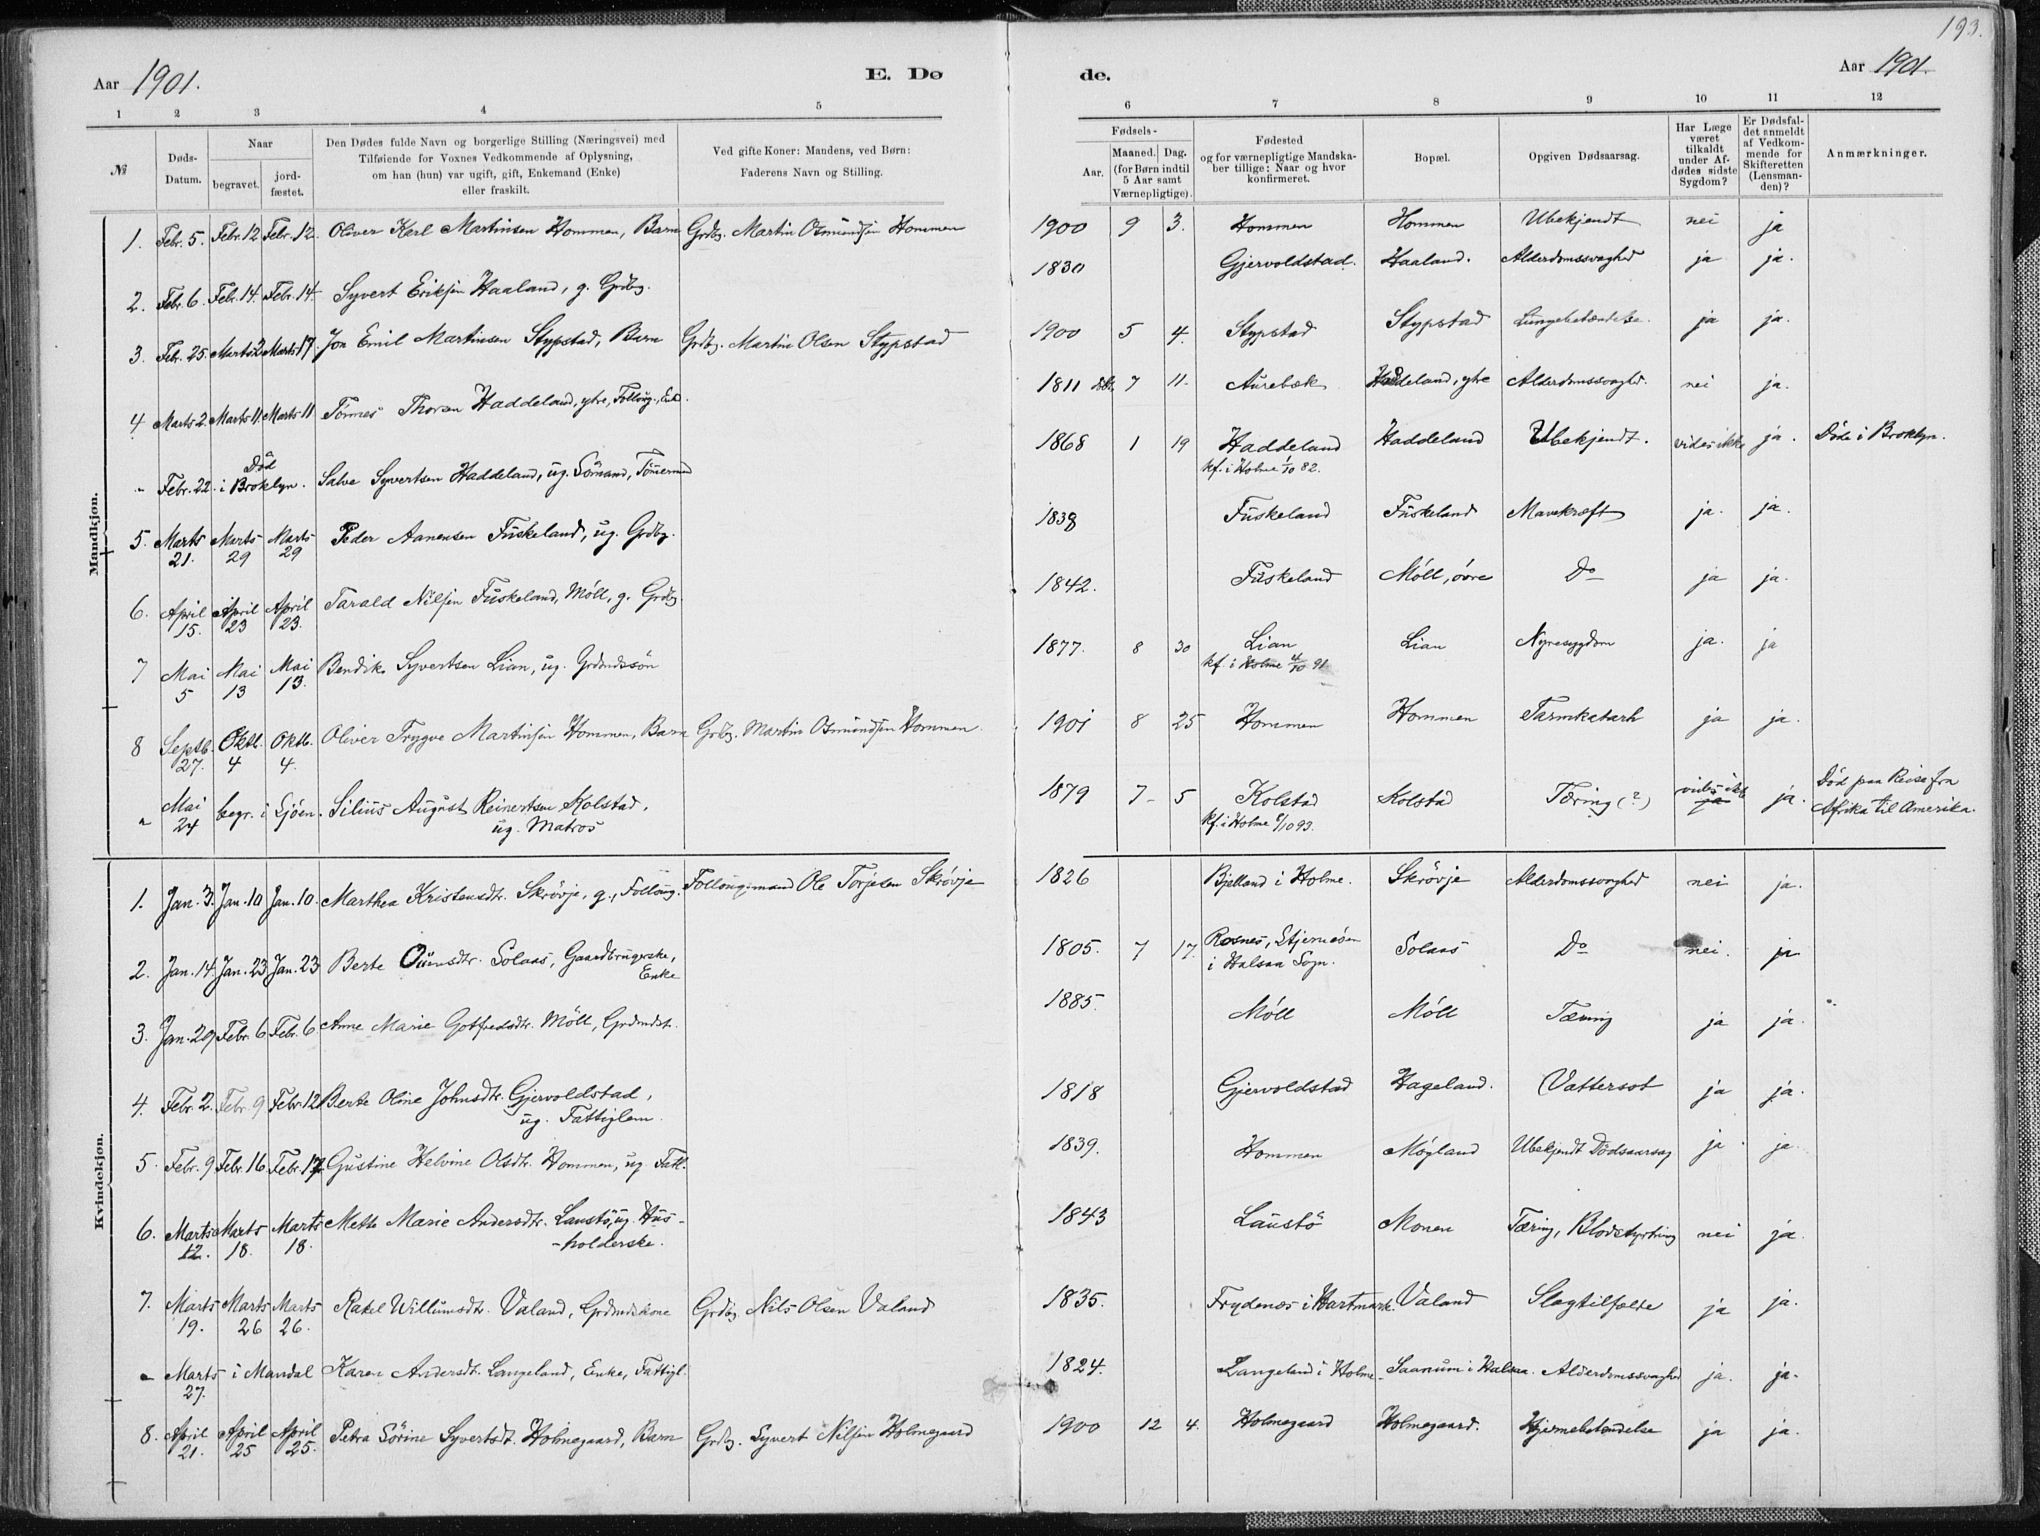 193.
Aar 1901. E. Dø de. Aar 1901.
1 2 3 4 5 6 7 8 9 10 11 12
№
Døds-Datum.
Naar
begravet.
jordfæstet.
Den Dødes fulde Navn og borgerlige Stilling (Næringsvei) med
Tilføiende for Voxnes Vedkommende af Oplysning,
om han (hun) var ugift, gift, Enkemand (Enke)
eller fraskilt.
Ved gifte Koner: Mandens, ved Børn:
Faderens Navn og Stilling.
Fødsels-
Aar.
Maaned. Dag.
(for Børn indtil
5 Aar samt
Værnepligtige).
Fødested
og for værnepligtige Mandska-
ber tillige: Naar og hvor
konfirmeret.
Bopæl.
Opgiven Dødsaarsag.
Har Læge
været
tilkaldt
under Af-
dødes sidste
Sygdom?
Er Dødsfal-
det anmeldt
af Vedkom-
mende for
Skifteretten
(Lensman-
den)?
Anmærkninger.
Mandkjøn.
1. Febr. 5. Febr. 12 Febr. 12. Oliver Karl Martinsen Hommen, Barn Grdbg. Martin Osmundsen Hommen 1900 9 3. Hommen Hommen Ubekjendt nei ja
2. Febr. 6. Febr. 14. Febr. 14. Syvert Eriksen Haaland, g. Grdbg. 1830 Gjervoldstad. Haaland. Alderdomssvaghed ja ja.
3. Febr. 25. Marts 2 Marts 17. Jon Emil Martinsen Stypstad, Barn Grdbg. Martin Olsen Stypstad 1900 5 4. Stypstad Stypstad Lungebetændelse. ja ja.
4 Marts 2. Marts 11. Marts 11 Tønnes Thorsen Haddeland, ytre, Follaug., Enk. 1811 7 11. Aurebæk Haddeland, ytre Alderdomssvaghed. nei ja.
" Febr. 22. Død i Broklyn. Salve Syvertsen Haddeland, ug. Sømand, Tømmermand 1868 1 19 Haddeland
kf. i Holme 1/10 82. Haddeland Ubekjendt. vides ikke ja. Døde i Broklyn.
5. Marts 21. Marts 29 Marts 29 Peder Aanensen Fuskeland, ug. Grdbg. 1838 Fuskeland Fuskeland Mavekræft ja. ja.
6. April 15. April 23 April 23. Tarald Nilsen Fuskeland, Möll, g. Grdbg. 1842. Fuskeland Möll, övre Do ja ja.
7 Mai 5 Mai 13 Mai 13. Bendik Syvertsen Lian, ug. Grdmdssön 1877. 8 30 Lian
kf. i Holme 4/10 91 Lian Nyresygdom ja. ja
8 Septb. 27. Oktb. 4 Oktb. 4. Oliver Trygve Martinsen Hommen, Barn Grdbg. Martin Osmundsen Hommen. 1901 8 25 Hommen Hommen Tarmkatarh ja ja.
" Mai 24 begr. i Sjöen. Silius August Reinertsen Kolstad,
ug. Matros 1879 7 5 Kolstad
kf. i Holme /10 93. Kolstad Tæring (?) vides ikke ja ja. Död paa Reise fra
Afrika til Amerika.
Kvindekjøn.
1. Jan. 3. Jan. 10 Jan. 10. Marthea Kristensdtr. Skrövje, g., Follaug. Follaugsmand Ole Torjesen Skrövje 1826 Bjelland i Holme. Skrövje Alderdomssvaghed nei ja.
2. Jan. 14. Jan. 23 Jan. 23 Berte Ounsdtr. Solaas, Gaardbrugerske,
Enke 1805. 7 17. Rosnes, Stjernøen
i Halsaa Sogn. Solaas Do nei. ja
3. Jan. 29 Febr. 6 Febr. 6 Anne Marie Gotfredsdtr. Möll, Grdmdsdt. 1885. Möll Möll Tæring ja ja.
4. Febr. 2. Febr. 9 Febr. 12 Berte Oline Johnsdtr. Gjervoldstad,
ug. Fattiglem. 1818 Gjervoldstad Hageland. Vattersot ja ja.
5. Febr. 9 Febr. 16 Febr. 17 Gustine Helvine Olsdtr. Hommen, ug. Fatl. 1839. Hommen Mögland Ubekjendt Dödsaarsag ja ja.
6. Marts 12. Marts 18. Marts 18. Mette Marie Andersdtr. Laustö, ug. Hus-
-holderske. 1843 Laustö Monen Tæring, Blodstyrtning nei ja.
7. Marts 19. Marts 26 Marts 26. Rakel Willumsdtr. Valand, Grdmdskone Grdbg. Nils Olsen Valand 1835. Frydenæs i Hartmark. Valand Slagtilfælde ja ja.
" Marts 27. i Mandal Karen Andersdtr. Langeland, Enke, Fattigl. 1824. Langeland i Holme Saanum i Halsaa. Alderdomssvaghed ja. ja.
8. April 21. April 25 April 25. Petra Sörine Syvertsdt. Holmegaard, Barn Grdbg. Syvert Nilsen Holmegaard 1900 12 4. Holmegaard Holmegaard. Hjernebetændelse ja ja.